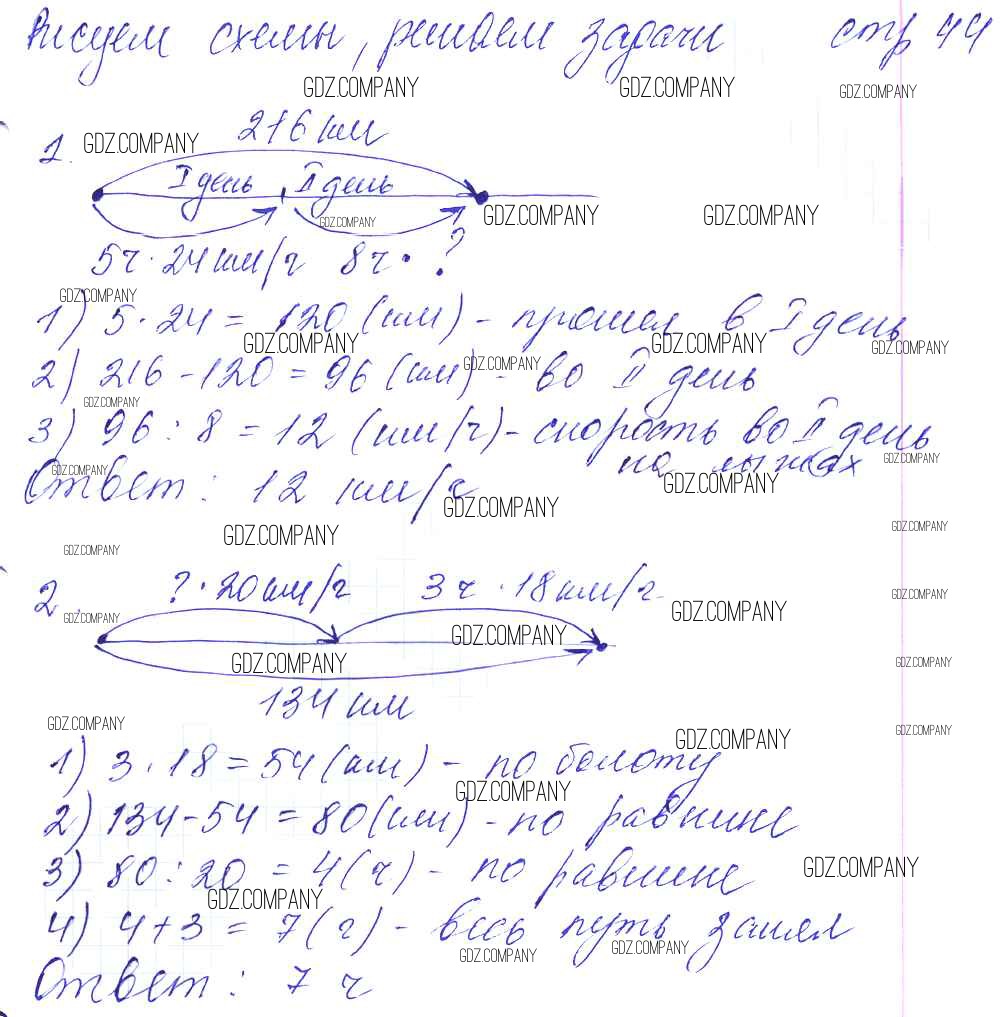 Рисуем схемы, решаем задачи стр 44
GDZ.COMPANY GDZ.COMPANY GDZ.COMPANY
216 км
1. GDZ.COMPANY
I день II день
GDZ.COMPANY GDZ.COMPANY GDZ.COMPANY
5ч · 24 км/ч 8ч · ?
GDZ.COMPANY
1) 5 · 24 = 120 (км) - прошел в I день
GDZ.COMPANY GDZ.COMPANY GDZ.COMPANY
2) 216 - 120 = 96 (км) - во II день
GDZ.COMPANY
GDZ.COMPANY
3) 96 : 8 = 12 (км/ч) - скорость во II день
на лыжах
GDZ.COMPANY GDZ.COMPANY
Ответ: 12 км/ч
GDZ.COMPANY
GDZ.COMPANY
GDZ.COMPANY GDZ.COMPANY
GDZ.COMPANY
2. ? · 20 км/ч 3 ч · 18 км/ч
GDZ.COMPANY
GDZ.COMPANY GDZ.COMPANY
GDZ.COMPANY
GDZ.COMPANY GDZ.COMPANY
134 км
GDZ.COMPANY GDZ.COMPANY
GDZ.COMPANY
1) 3 · 18 = 54 (км) - по болоту
GDZ.COMPANY
2) 134 - 54 = 80 (км) - по равнине
3) 80 : 20 = 4 (ч) - по равнине
GDZ.COMPANY
GDZ.COMPANY
4) 4 + 3 = 7 (ч) - весь путь занял
GDZ.COMPANY GDZ.COMPANY
Ответ: 7 ч